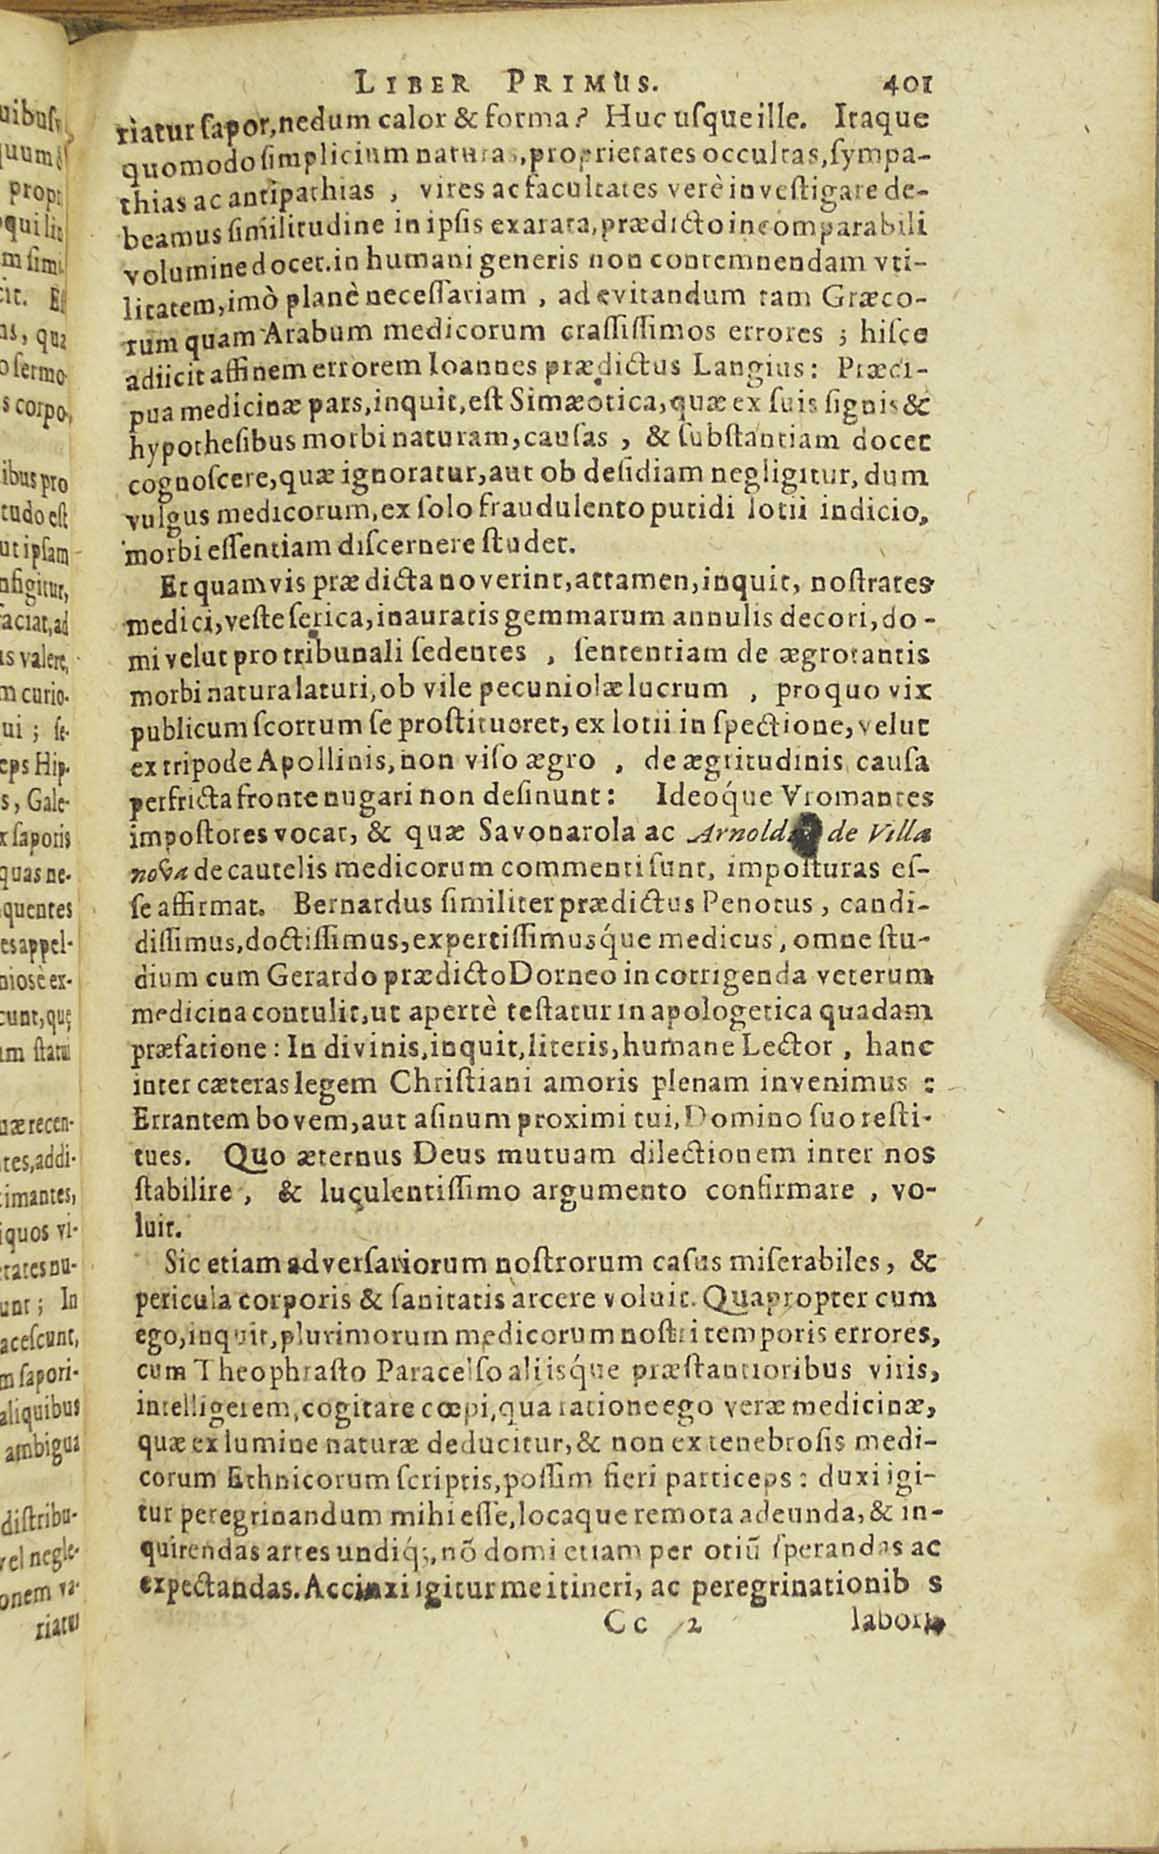 LIBER PRIMUS. 401
riatur sapor, nedum calor & forma? Huc usque ille. Itaque
quomodo simplicium naturas, proprietates occultas, sympa-
thias ac antipathias, vires ac facultates verè investigare de-
beamus similitudine in ipsis exarata, prædicto incomparabili
volumine docet. in humani generis non contemnendam vti-
litatem, imò planè necessariam, ad evitandum tam Græco-
rum quam Arabum medicorum crassissimos errores; hisce
adiicit affinem errorem Ioannes prædictus Langius: Præci-
pua medicinæ pars, inquit, est Simæotica, quæ ex suis signis &
hypothesibus morbi naturam, causas, & substantiam docet
cognoscere, quæ ignoratur, aut ob desidiam negligitur, dum
vulgus medicorum, ex solo fraudulento putidi lotii indicio,
morbi essentiam discernere studet.
Et quamvis prædicta noverint, attamen, inquit, nostrates
medici, veste serica, inauratis gemmarum annulis decori, do-
mi velut pro tribunali sedentes, sententiam de ægrotantis
morbi natura laturi, ob vile pecuniolæ lucrum, pro quo vix
publicum scortum se prostitueret, ex lotii inspectione, velut
ex tripode Apollinis, non viso ægro, de ægritudinis causa
perfricta fronte nugari non desinunt: Ideóque Vromantes
impostores vocat, & quæ Savonarola ac Arnold de Villa
nova de cautelis medicorum commenti sunt, imposturas es-
se affirmat. Bernardus similiter prædictus Penotus, candi-
dissimus, doctissimus, expertissimusq́ue medicus, omne stu-
dium cum Gerardo prædicto Dorneo in corrigenda veterum
medicina contulit, ut apertè testatur in apologetica quadam
præfatione: In divinis, inquit, literis, humane Lector, hanc
inter cæteras legem Christiani amoris plenam invenimus:
Errantem bovem, aut asinum proximi tui, Domino suo resti-
tues. Quo æternus Deus mutuam dilectionem inter nos
stabilire, & luçulentissimo argumento confirmare, vo-
luit.
Sic etiam adversariorum nostrorum casus miserabiles, &
pericula corporis & sanitatis arcere voluit. Quapropter cum
ego, inquit, plurimorum medicorum nostri temporis errores,
cum Theophrasto Paracelso aliisq́ue præstantioribus viris,
intelligerem, cogitare cœpi, qua ratione ego veræ medicinæ,
quæ ex lumine naturæ deducitur, & non ex tenebrosis medi-
corum Ethnicorum scriptis, possim fieri particeps: duxi igi-
tur peregrinandum mihi esse, locaque remota adeunda, & in-
quirendas artes undiq́;, nõ domi etiam per otiũ sperandas ac
expectandas. Accinxi igitur me itineri, ac peregrinationib s
Cc 2 labori